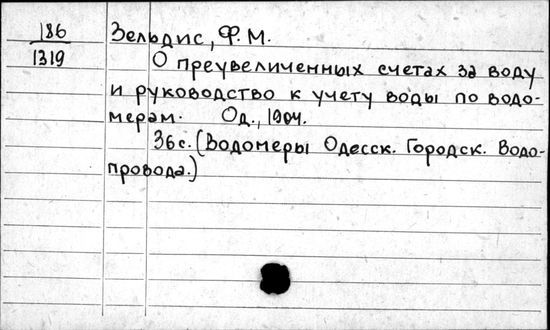 186
1319
Зельдис, Ф. М.
О преувеличенных счетах за воду
и руководство к учету воды по водо-
мерам. Од., 1904.
36 с. (Водомеры Одесск. Городск. Водо-
провода.)